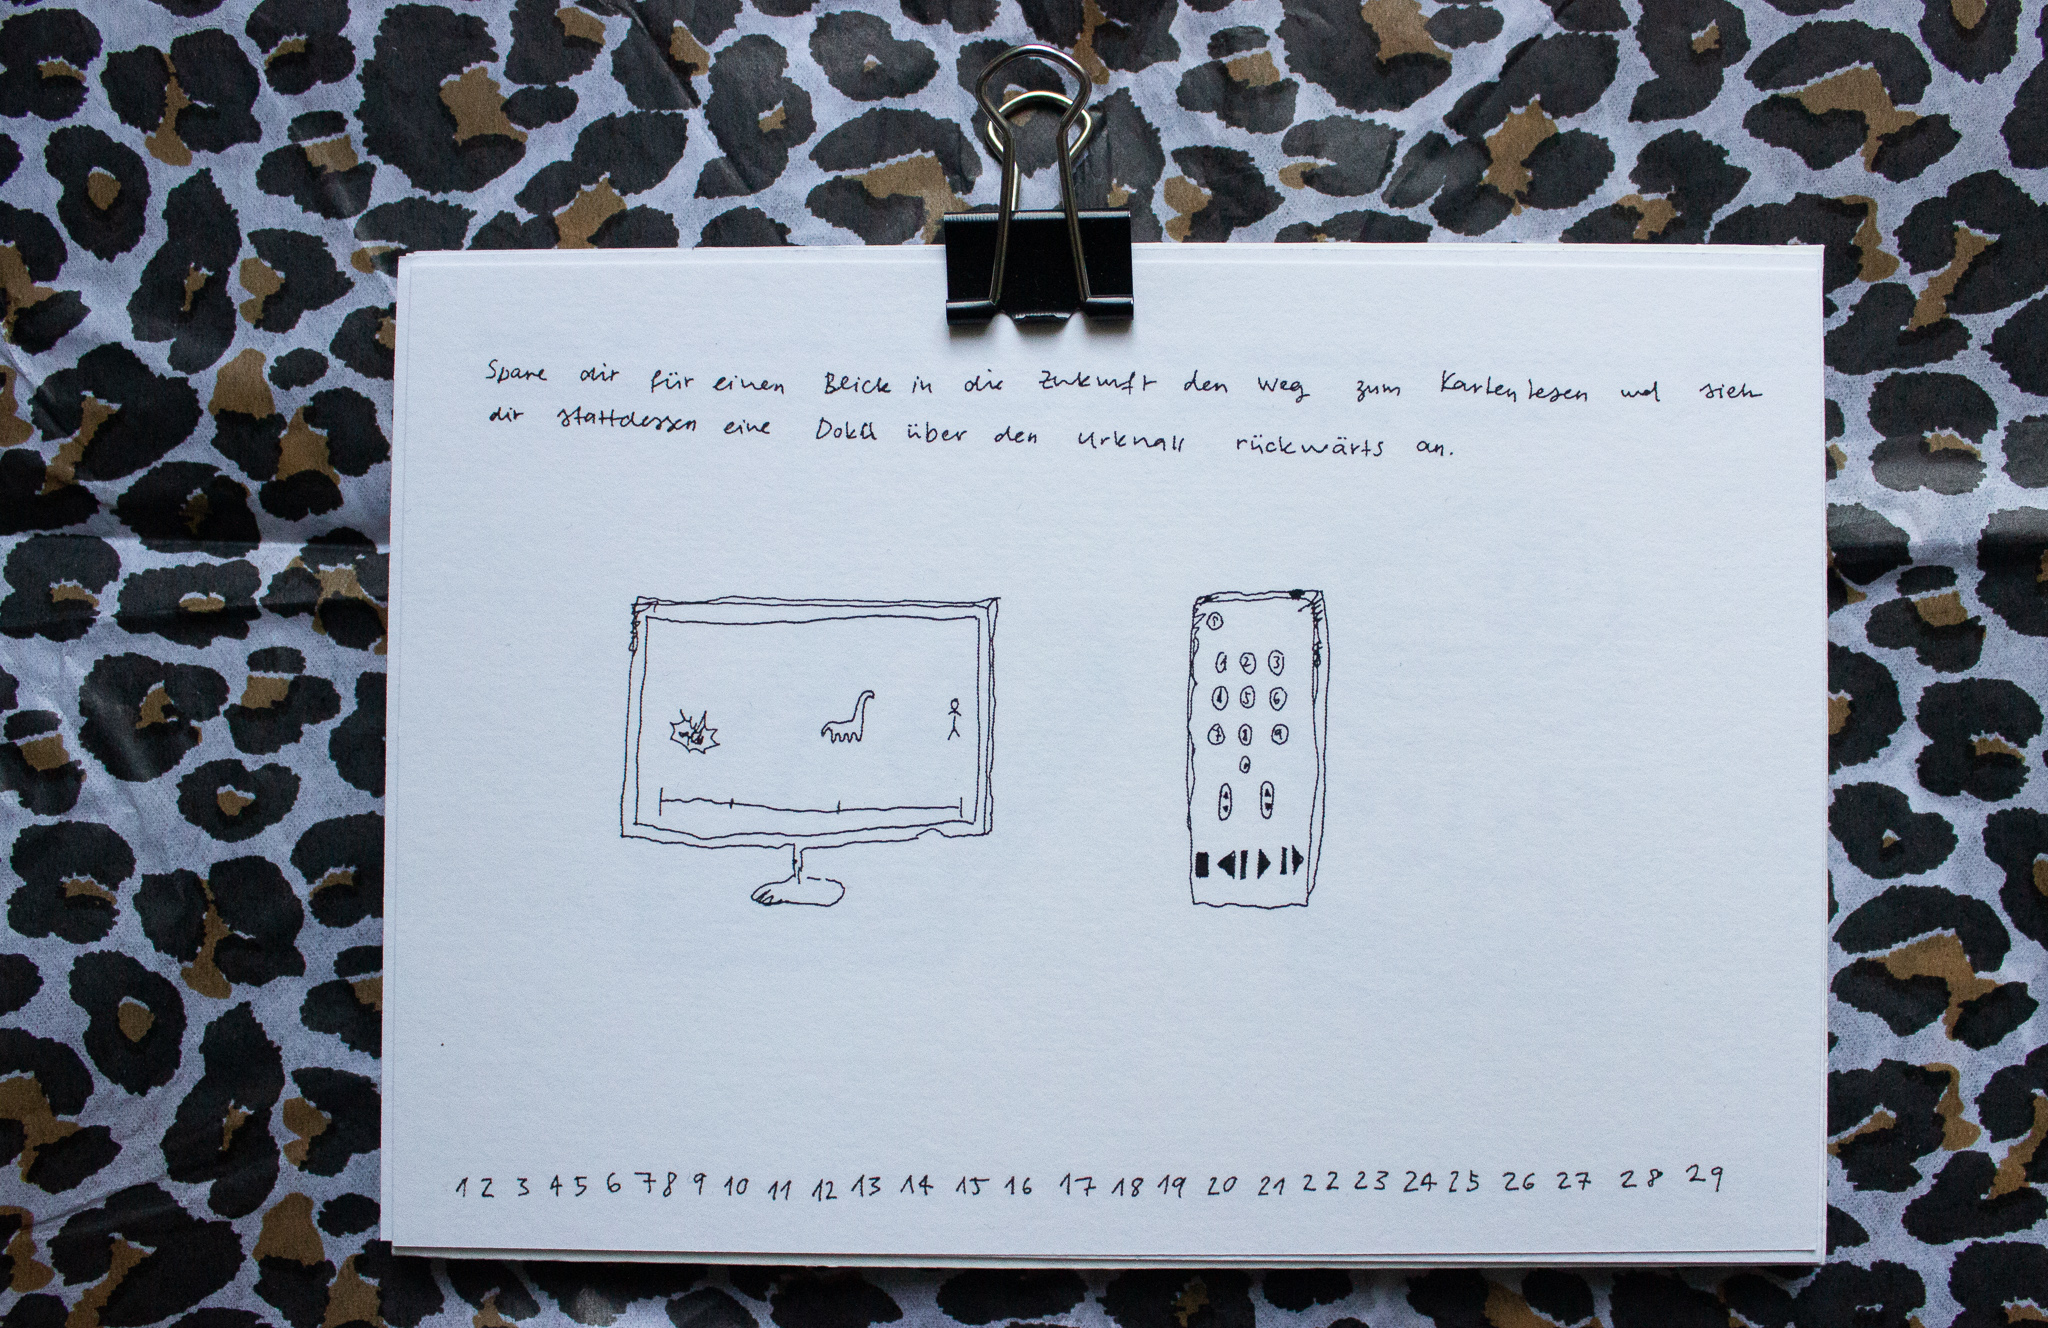 Spare dir für einen Blick in die Zukunft den Weg zum Kartenlesen und sieh
dir stattdessen eine Doku über den Urknall rückwärts an.
1 2 3
4 5 6
7 8 9
0
1 2 3 4 5 6 7 8 9 10 11 12 13 14 15 16 17 18 19 20 21 22 23 24 25 26 27 28 29